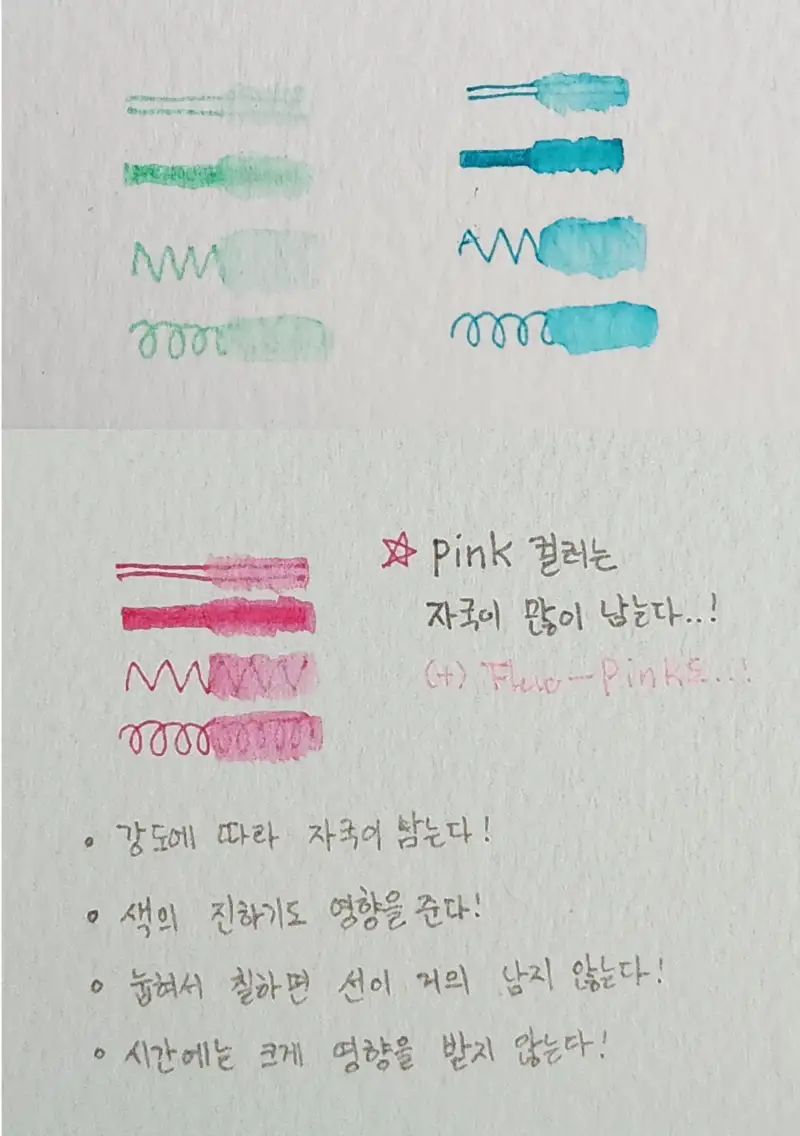 ☆ pink 컬러는
자국이 많이 남는다..!
(+) Fluo-Pink도..!
• 강도에 따라 자국이 남는다!
• 색의 진하기도 영향을 준다!
• 눕혀서 칠하면 선이 거의 남지 않는다!
• 시간에는 크게 영향을 받지 않는다!